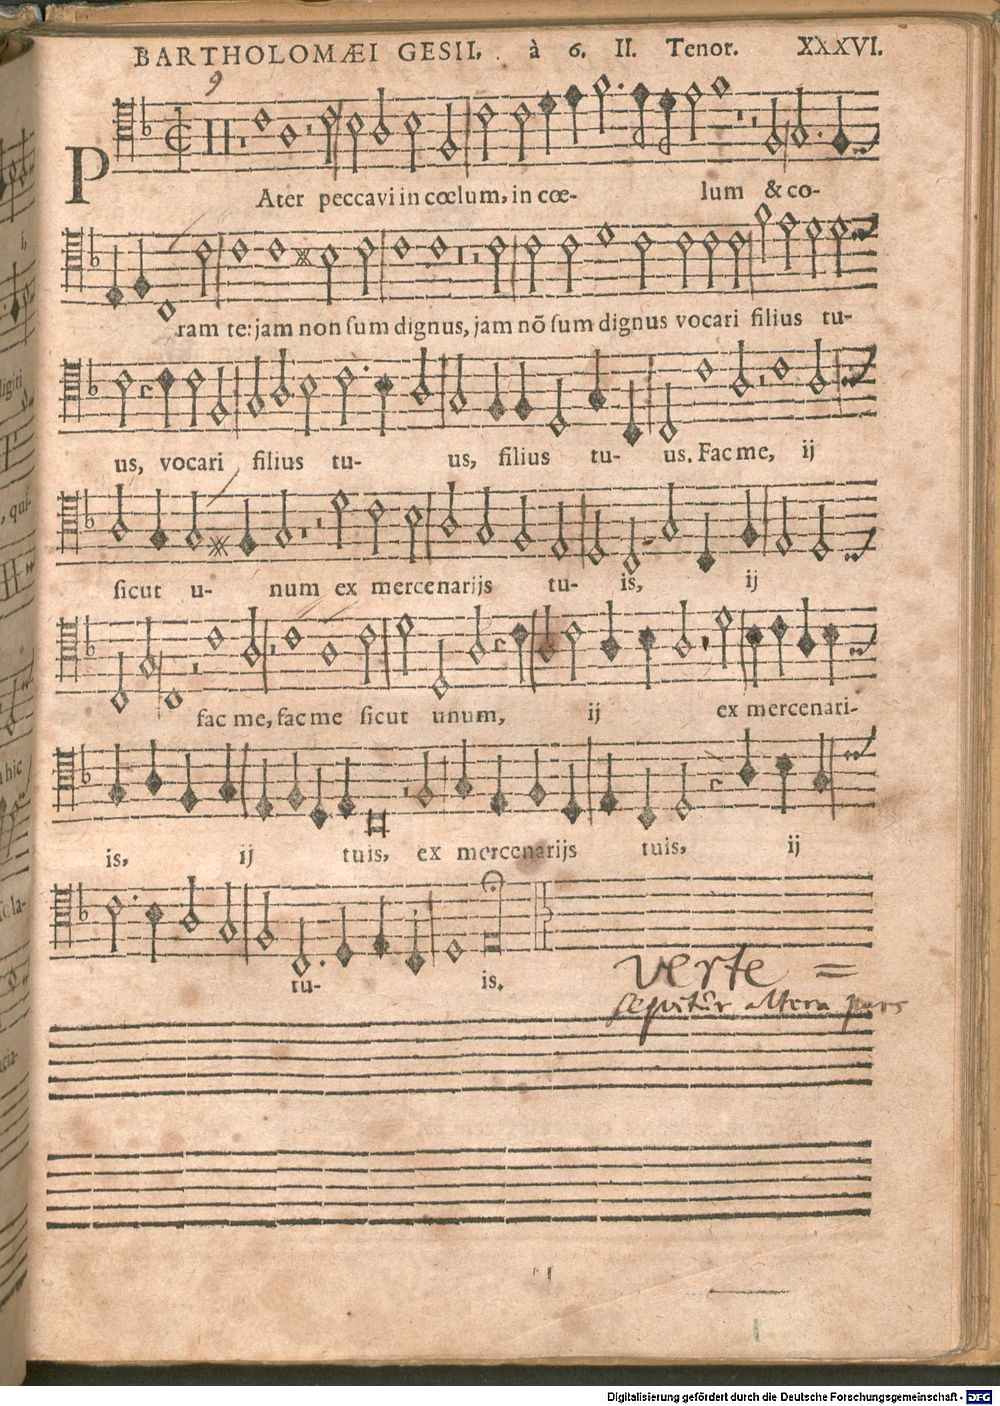 BARTHOLOMÆI GESII. à 6. II. Tenor. XXXVI.
9
PAter peccavi in cœlum, in cœ- lum & co-
ram te: jam non ſum dignus, jam nõ ſum dignus vocari filius tu-
us, vocari filius tu- us, filius tu- us. Fac me, ij
ſicut u- num ex mercenarijs tu- is, ij
fac me, fac me ſicut unum, ij ex mercenari-
is, ij tuis, ex mercenarijs tuis, ij
tu- is.
verte =
sequitur altera pars
Digitalisierung gefördert durch die Deutsche Forschungsgemeinschaft - DFG